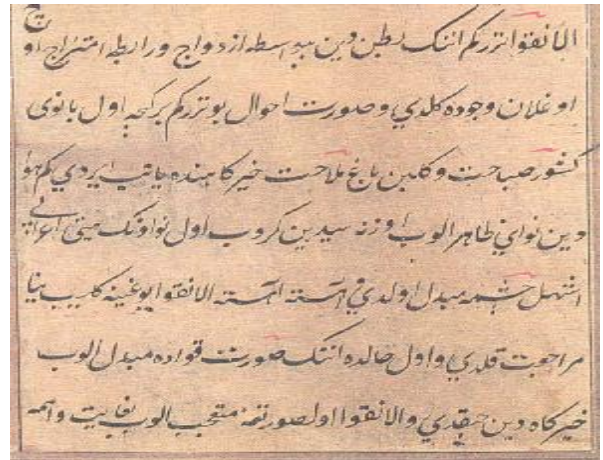 الانقوا تررکم اننک بطن دین بیواسطه ازدواج و رابطه امتزاج اوچ
اوغلان وجوده کلدی و صورت احوال بو تررکم بر کجه اول بانوی
کشور صباحت و کلبن باغ ملاحت خیرکاهنده یاتیب ایردی کم هوا
دین نوای ظاهر الوب اوزنه سیدین کروب اول نو اوننک
اشهل چشمه مبدل اولدی آهسته آهسته الانقوا یوغینه کلیب ینا
مراجوت قلدی و اول حالده اننک صورت قواده مبدل الوب
خیرکاه دین چیقدی و الانقوا اول صورتنه متعجب الوب بغایت واهمه